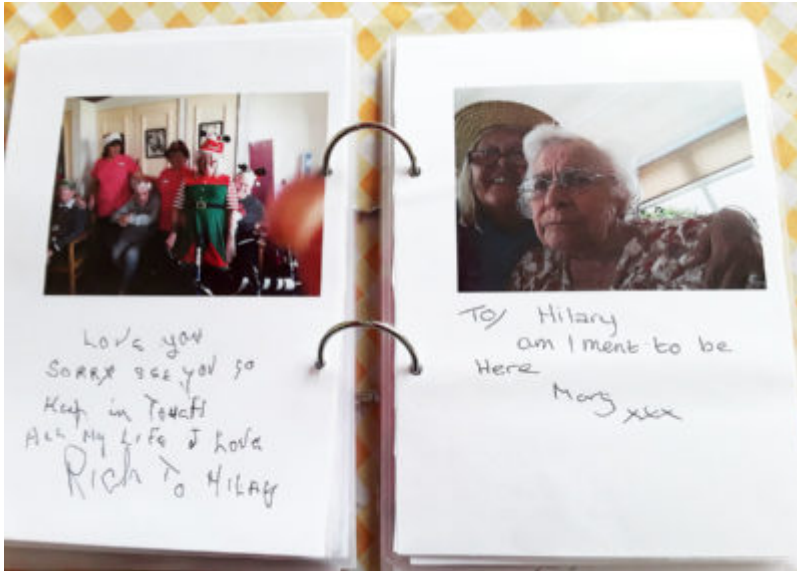 Love you
Sorry see you go
Keep in Touch
All My Life I Love
Rich To Hilay
To/ Hilary
am I ment to be
Here
Mary xxx